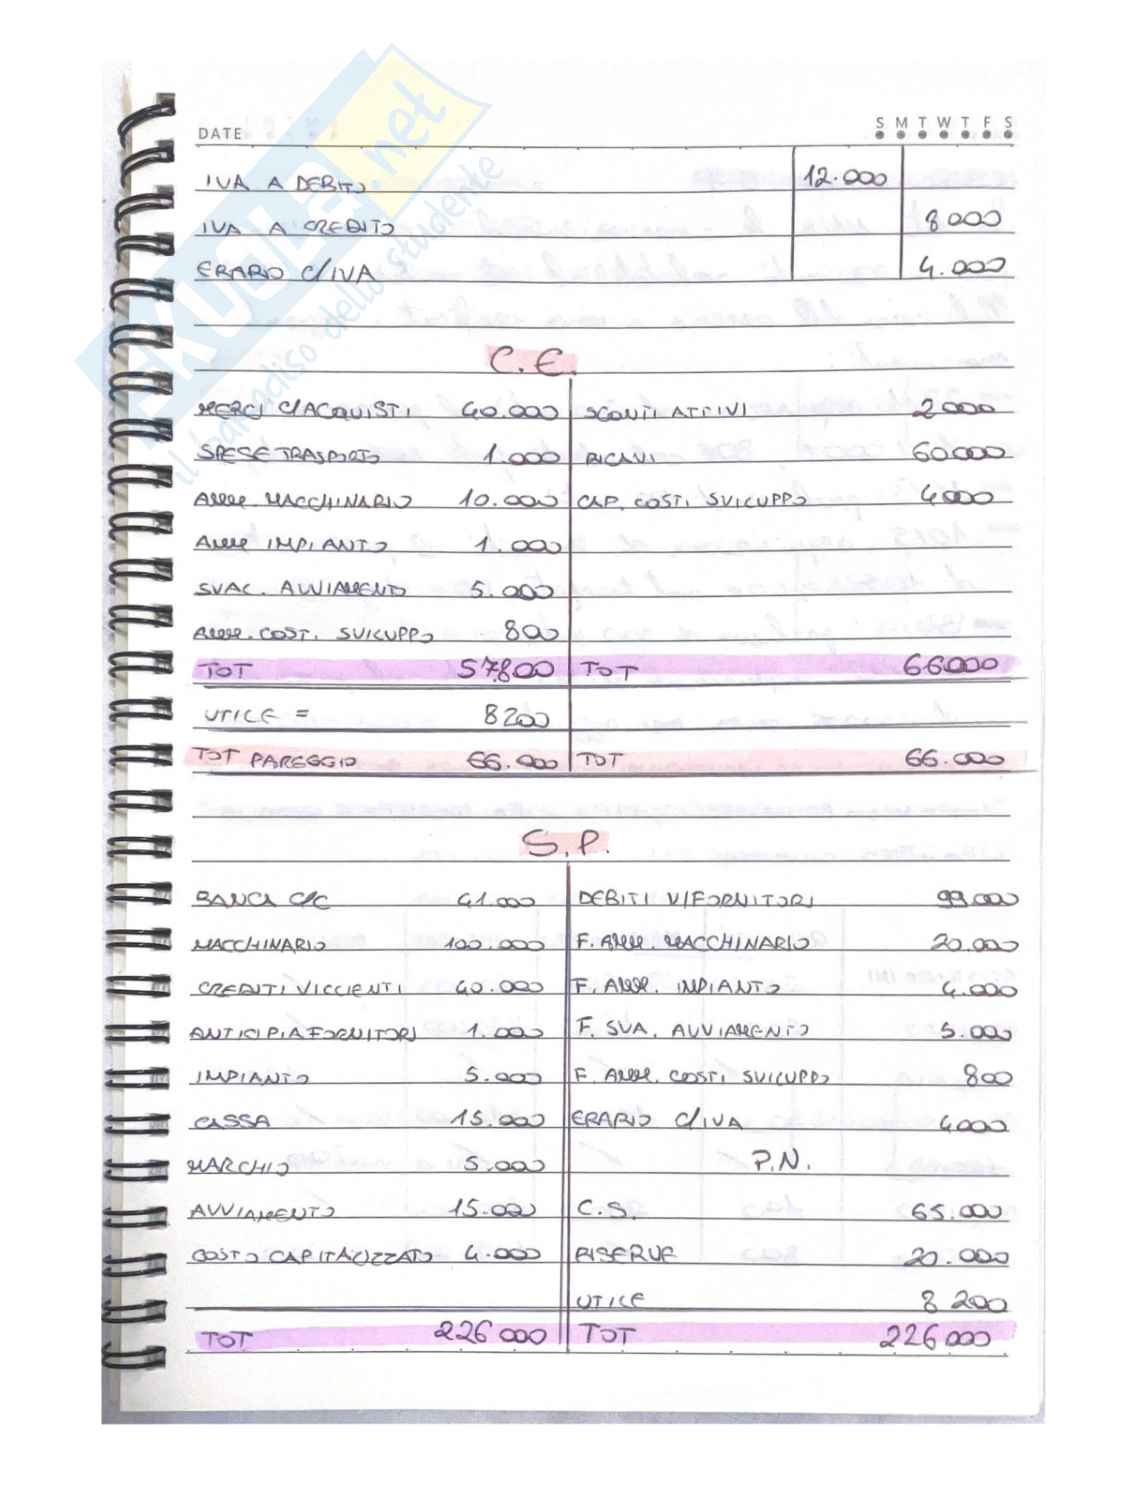 SKUOLA.net
il paradiso dello studente
DATE S M T W T F S
IVA A DEBITO 12.000
IVA A CREDITO 8000
ERARIO C/IVA 4.000
C.E.
MERCI C/ACQUISTI 40.000 SCONTI ATTIVI 2000
SPESE TRASPORTO 1.000 RICAVI 60.000
AMM. MACCHINARIO 10.000 CAP. COSTI SVILUPPO 4000
AMM IMPIANTO 1.000
SVAL. AVVIAMENTO 5.000
AMM. COST. SVILUPPO 800
TOT 57.800 TOT 66000
UTILE = 8200
TOT PAREGGIO 66.000 TOT 66.000
S.P.
BANCA C/C 41.000 DEBITI V/FORNITORI 99.000
MACCHINARIO 100.000 F. AMM. MACCHINARIO 20.000
CREDITI V/CLIENTI 40.000 F. AMM. IMPIANTO 4.000
ANTICIPI A FORNITORI 1.000 F. SVA. AVVIAMENTO 5.000
IMPIANTO 5.000 F. AMM. COSTI SVILUPPO 800
CASSA 15.000 ERARIO C/IVA 4000
MARCHIO 5.000 P.N.
AVVIAMENTO 15.000 C.S. 65.000
COSTO CAPITALIZZATO 4.000 RISERVE 20.000
UTILE 8200
TOT 226000 TOT 226000